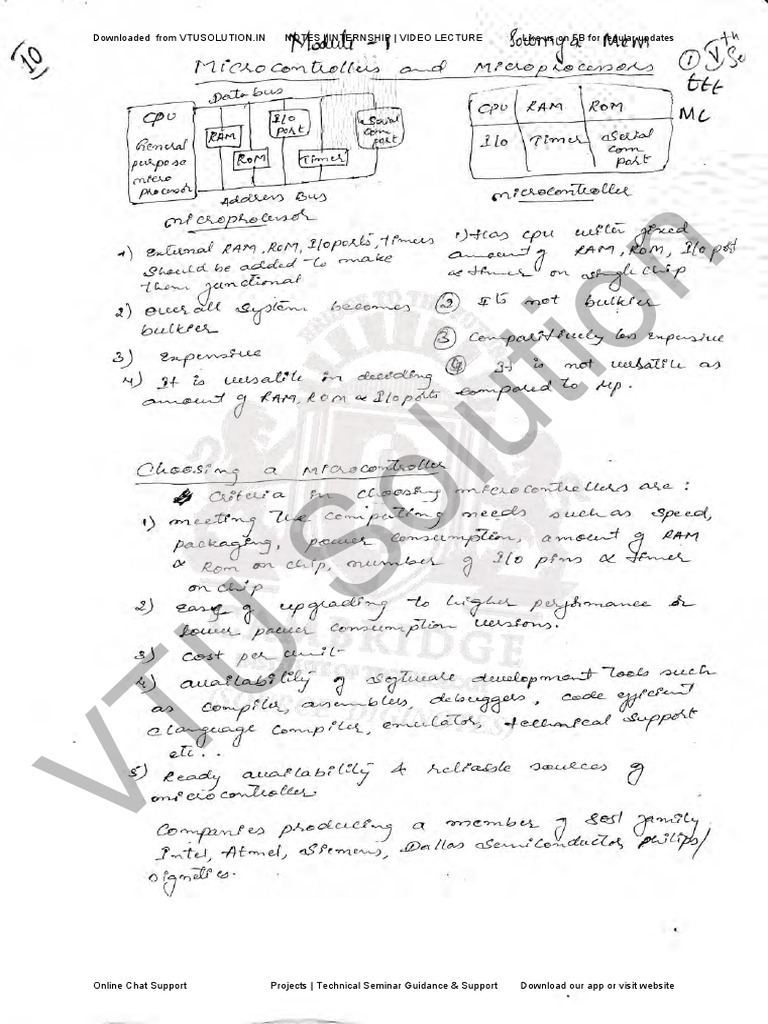 Downloaded from VTUSOLUTION.IN NOTES | INTERNSHIP | VIDEO LECTURE Like us on FB for regular updates
Module - 1
10
1 Vth Se
Microcontrollers and Microprocessors
ttt
MC
Data bus
CPU
General
purpose
micro
processor
RAM
ROM
I/O
port
Timer
Serial
com
port
Address Bus
microprocessor
CPU RAM ROM
I/O Timer Serial
com
port
microcontroller
1) External RAM, ROM, I/O ports, timers
should be added to make
them functional
2) Overall system becomes
bulkier
3) Expensive
4) It is versatile in deciding
amount of RAM, ROM & I/O ports
1) Has CPU with fixed
amount of RAM, ROM, I/O port
& timer on single chip
2 It is not bulkier
3 Comparitively less expensive
4 It is not versatile as
compared to μp.
Choosing a microcontroller
Criteria in choosing microcontrollers are :
1) meeting the computing needs such as speed,
packaging, power consumption, amount of RAM
& Rom on chip, number of I/O pins & timer
on chip
2) easy of upgrading to higher performance or
lower power consumption versions.
3) Cost per unit
4) availability of software development tools such
as compiler, assemblers, debuggers, code efficient
C language compiler, emulator, technical support
etc..
5) Ready availability & reliable sources of
microcontroller.
Companies producing a member of 8051 family
Intel, Atmel, Siemens, Dallas Semiconductor philips/
signetics.
VTU Solution
Online Chat Support Projects | Technical Seminar Guidance & Support Download our app or visit website